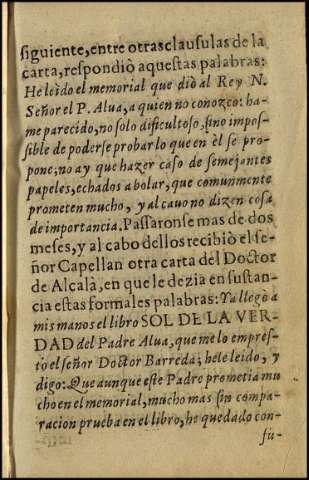 siguiente, entre otras clausulas de la
carta, respondiò aquestas palabras:
He leido el memorial que diò al Rey N.
Señor el P. Alua, a quien no conozco: ha-
me parecido, no solo dificultoso, sino impos-
sible de poderse probar lo que en èl se pro-
pone; no ay que hazer caso de semejantes
papeles, echados a bolar, que comunmente
prometen mucho, y al cauo no dizen cosa
de importancia. Passaronse mas de dos
meses, y al cabo dellos recibiò el se-
ñor Capellan otra carta del Doctor
de Alcalà, en que le dezia en sustan-
cia estas formales palabras: Ya llegò a
mis manos el libro SOL DE LA VER-
DAD del Padre Alua, que me lo empres-
tò el señor Doctor Barreda; hele leido, y
digo: Que aunque este Padre prometia mu
cho en el memorial, mucho mas sin compa-
racion prueba en el libro, he quedado con-
fu-